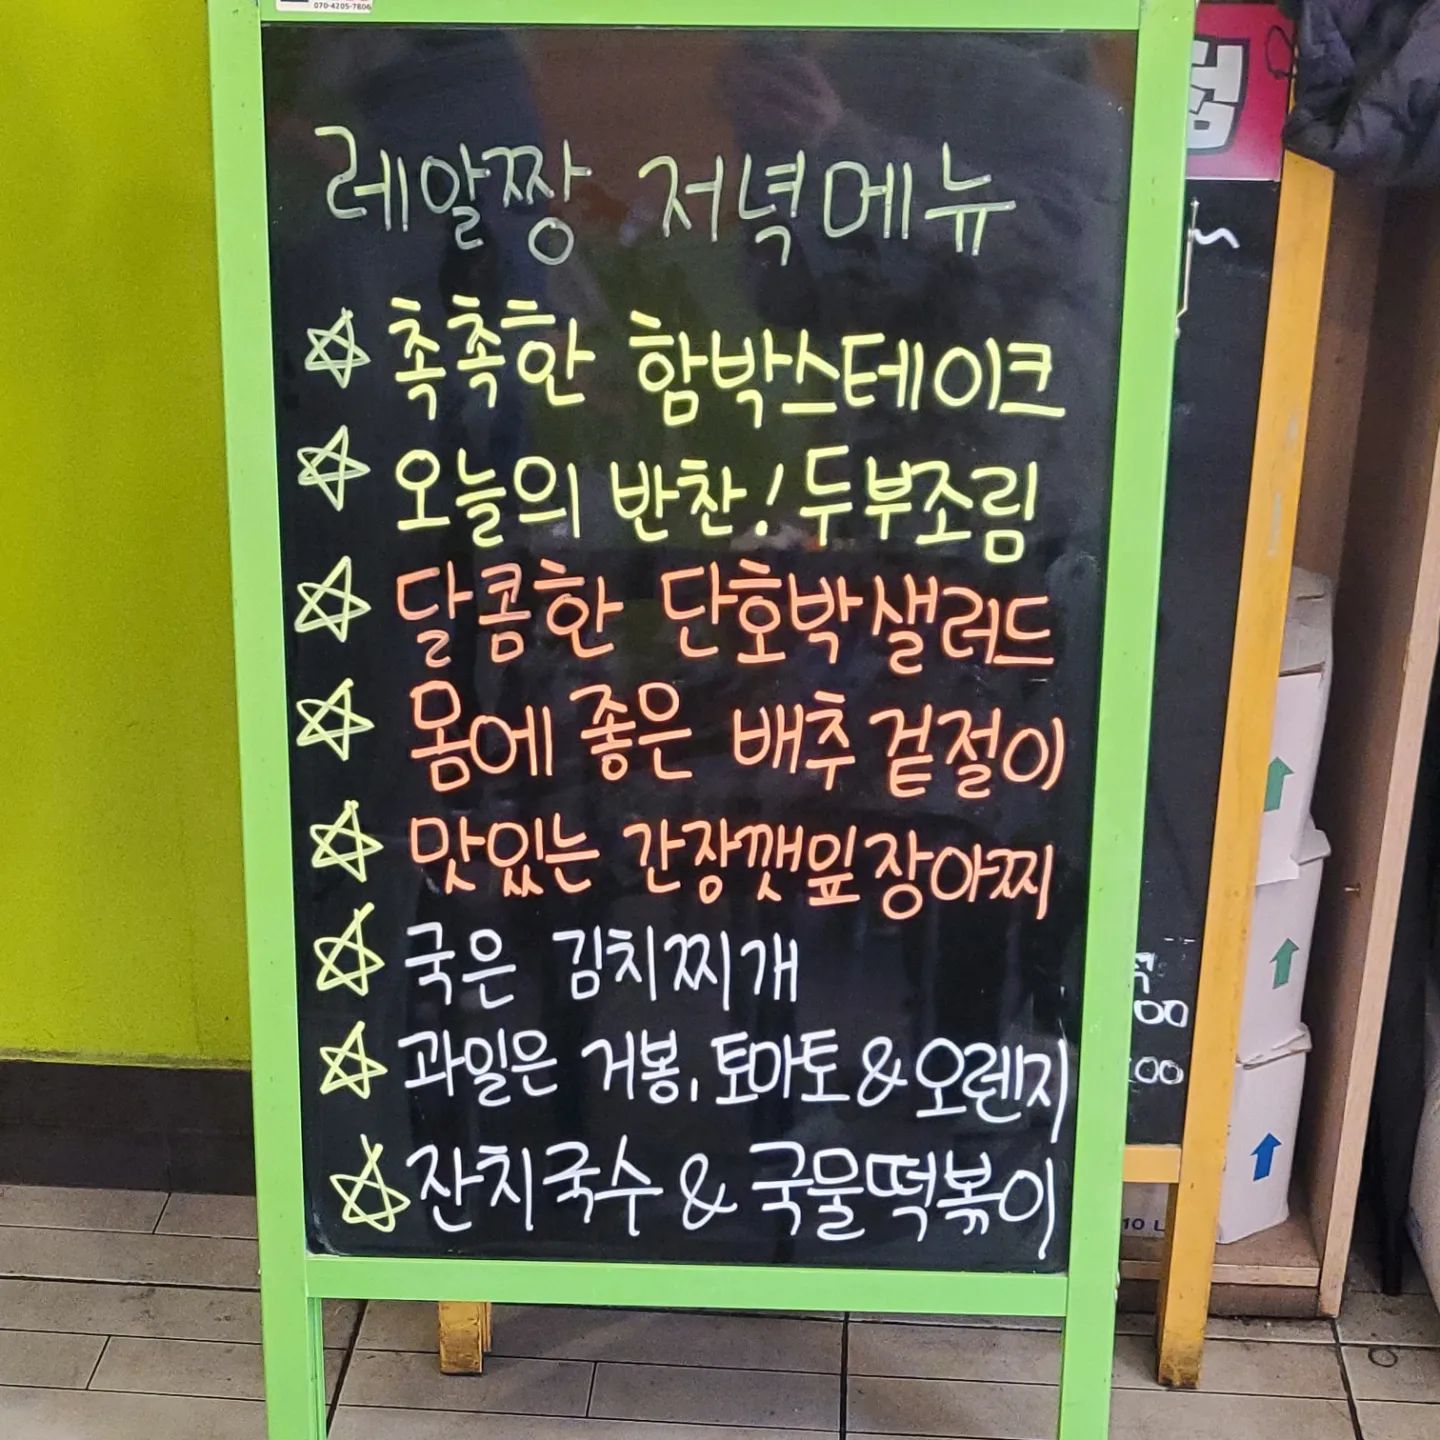 070-4205-7806
레알짱 저녁메뉴
촉촉한 함박스테이크
오늘의 반찬! 두부조림
달콤한 단호박샐러드
몸에 좋은 배추 겉절이
맛있는 간장깻잎장아찌
국은 김치찌개
과일은 거봉, 토마토 & 오렌지
잔치국수 & 국물떡볶이
10 L